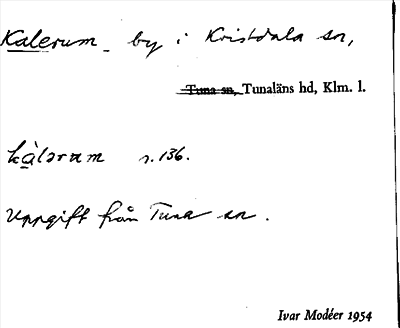 Kalerum by i Kristdala sn,
Tuna sn, Tunaläns hd, Klm. l.
kàlərum s. 136.
Uppgift från Tuna sn.
Ivar Modéer 1954